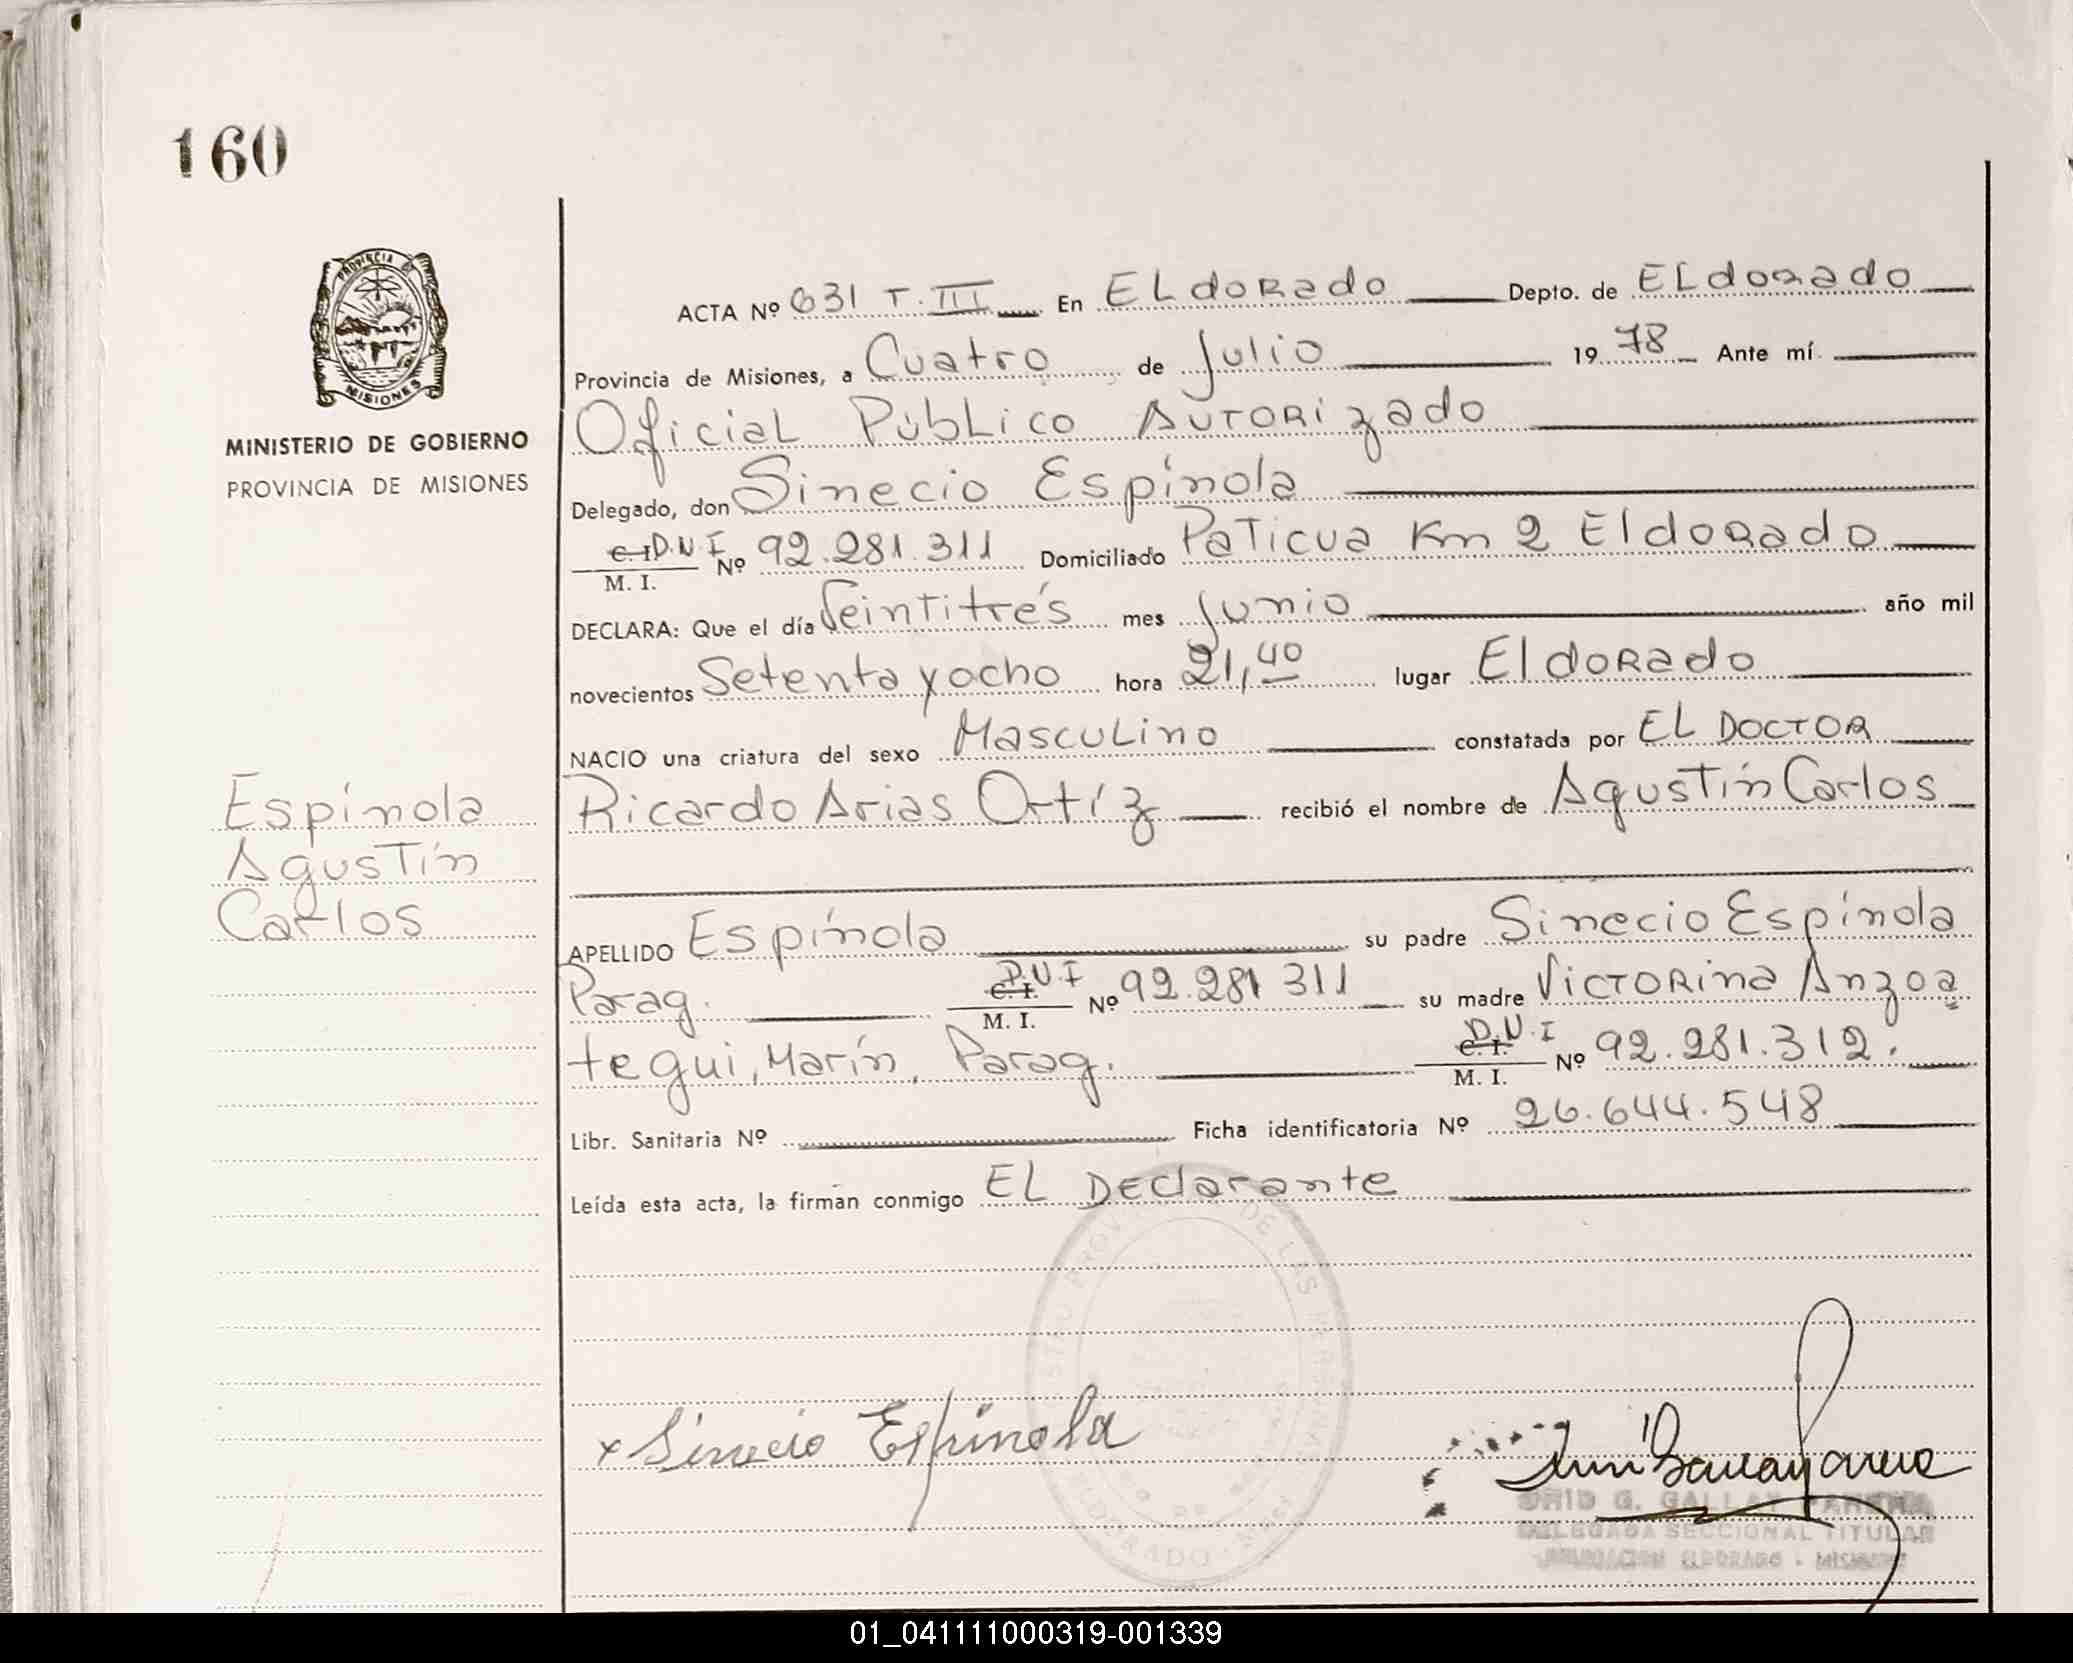 160
PROVINCIA DE
MISIONES
MINISTERIO DE GOBIERNO
PROVINCIA DE MISIONES
Espínola
Agustín
Carlos
ACTA Nº 631 T. III En ELdorado Depto. de ELdorado
Provincia de Misiones, a Cuatro de Julio 1978 Ante mí
Oficial Público Autorizado
Delegado, don Sinecio Espínola
C. I. D.N.I M. I. Nº 92.281.311 Domiciliado Paticua Km 2 Eldorado
DECLARA: Que el día Veintitrés mes Junio año mil
novecientos Setenta y ocho hora 21,40 lugar Eldorado
NACIO una criatura del sexo Masculino constatada por EL DOCTOR
Ricardo Arias Ortíz recibió el nombre de Agustín Carlos
APELLIDO Espínola su padre Sinecio Espínola
Parag. C. I. D.N.I M. I. Nº 92.281 311 su madre Victorina Anzoa
tegui, Marín, Parag. C. I. D.N.I M. I. Nº 92.281.312.
Libr. Sanitaria Nº Ficha identificatoria Nº 26.644.548
Leída esta acta, la firman conmigo EL Declarante
DE LAS
ELDORADO
x Sinecio Espínola
G. GALLAY
DELEGADA SECCIONAL TITULAR
DELEGACION ELDORADO - MISIONES
01_041111000319-001339